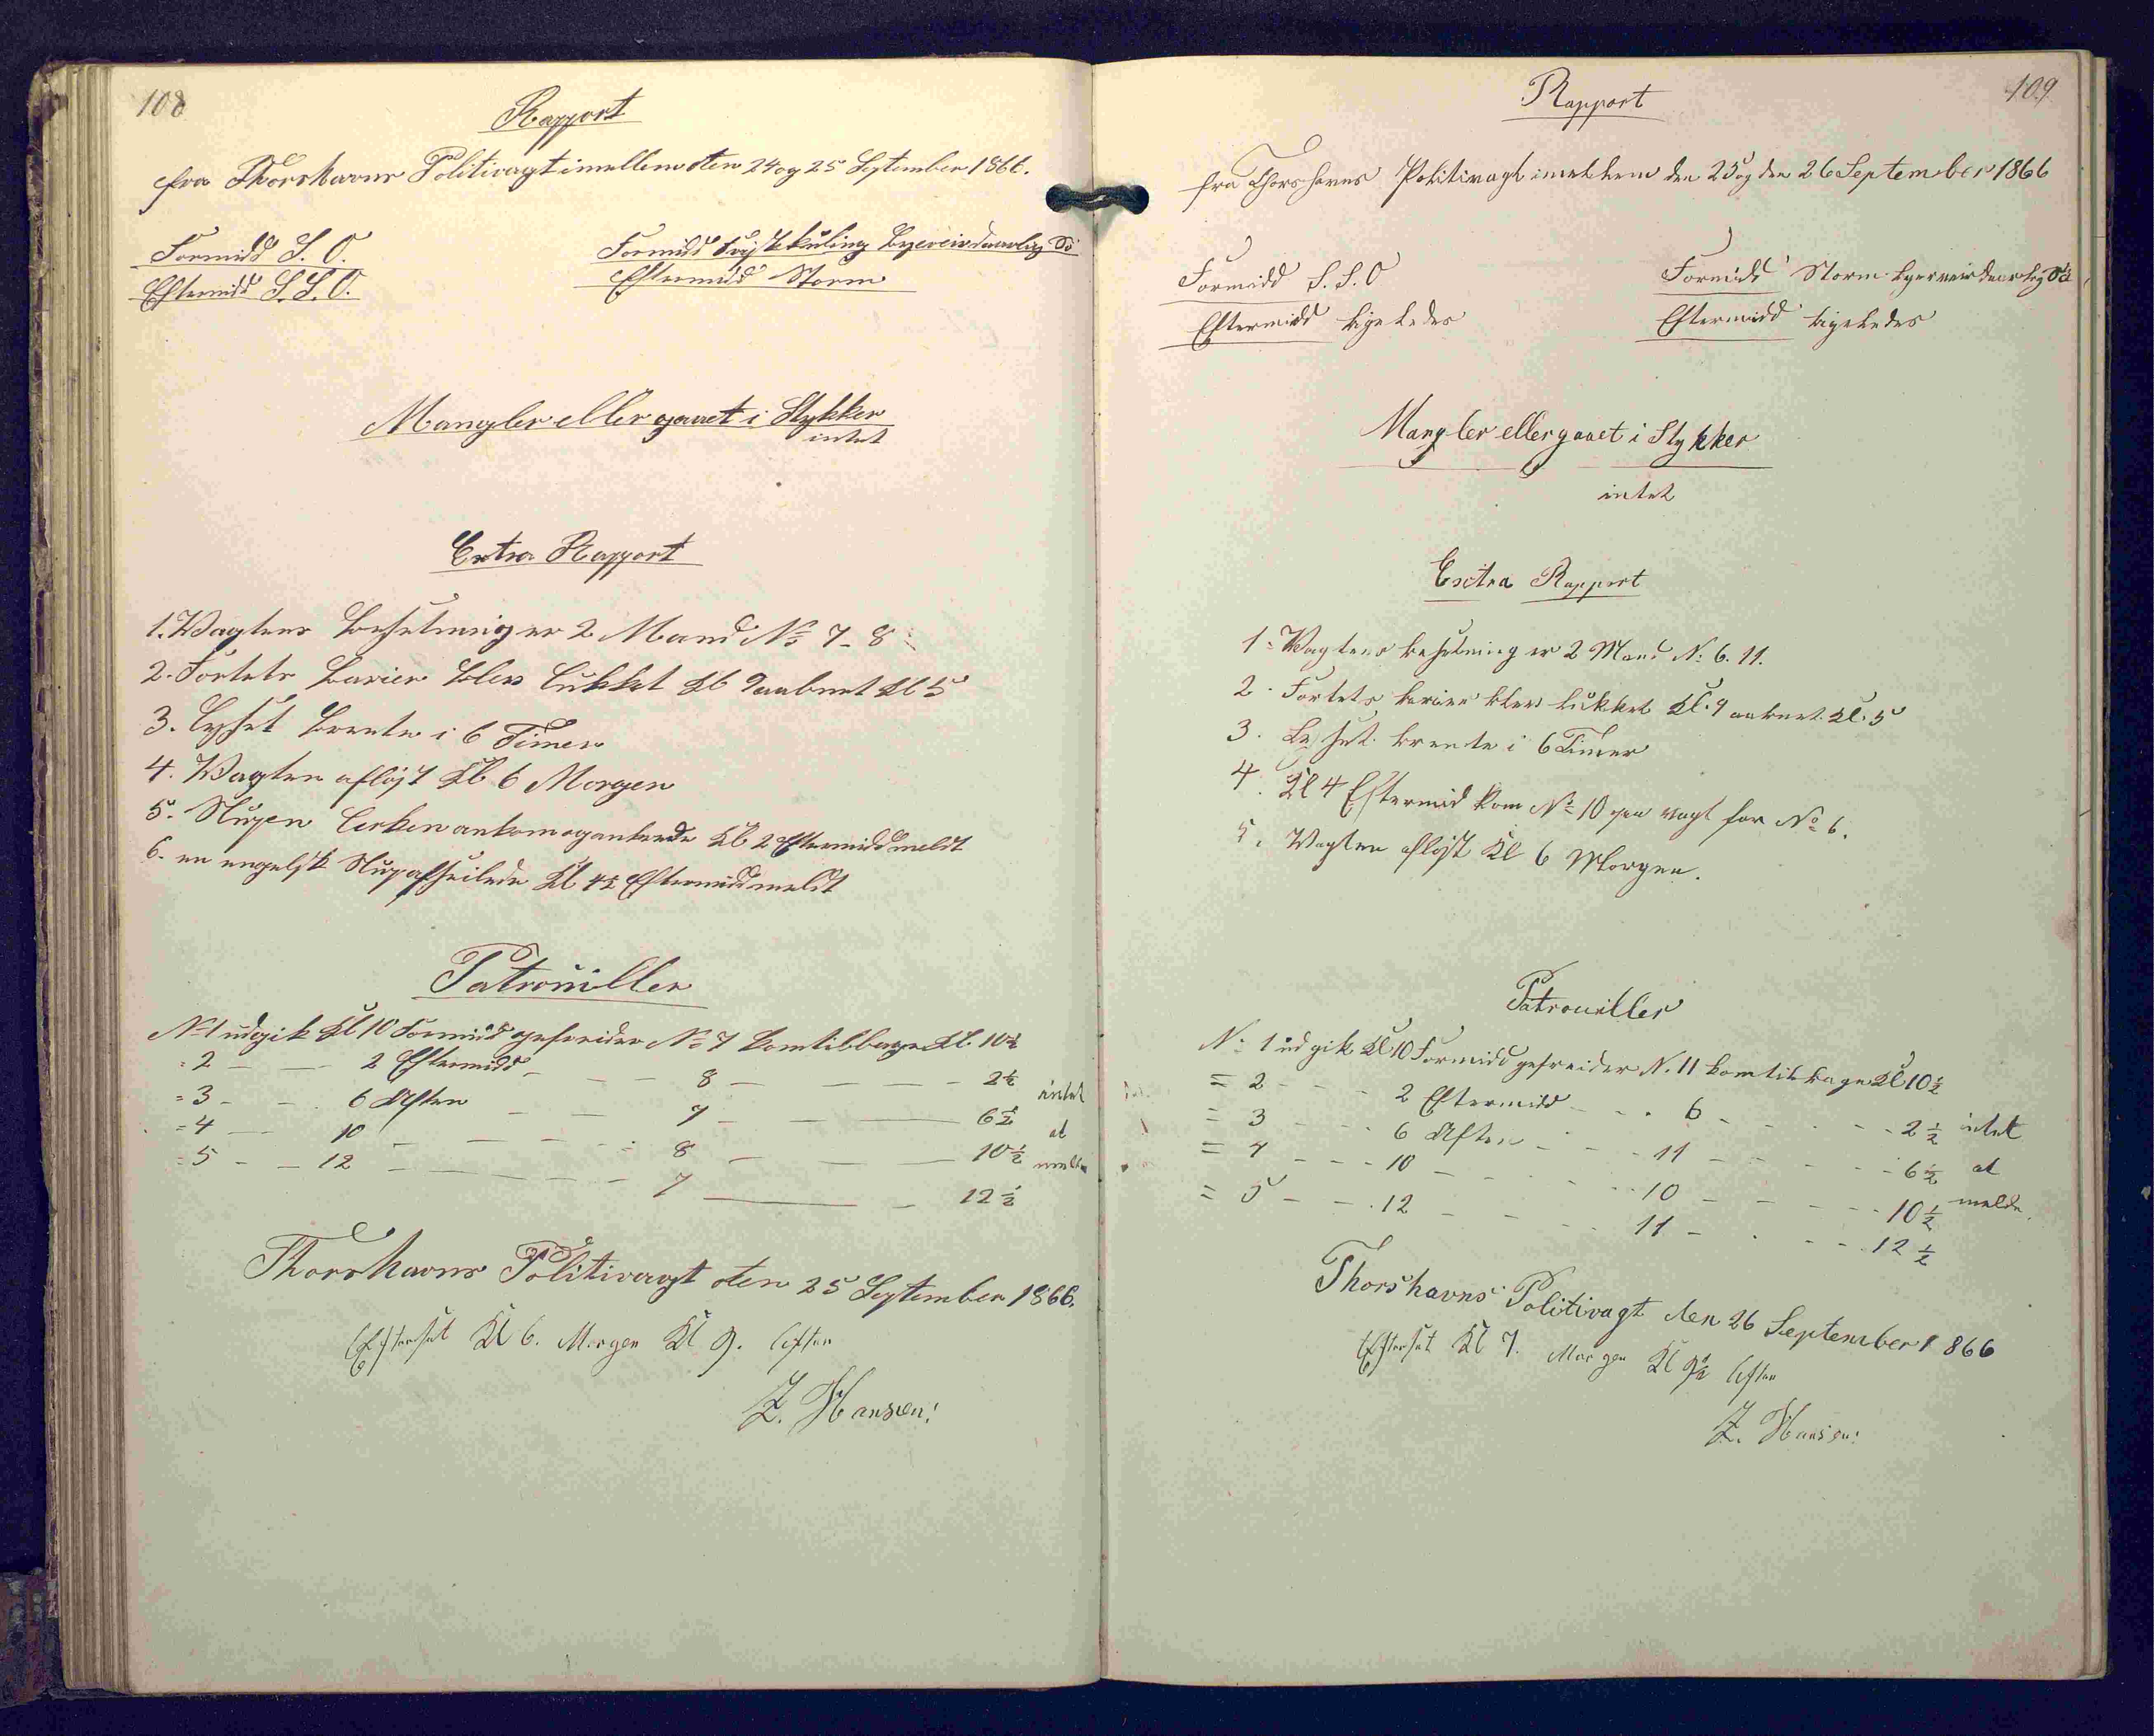 108
Rapport
fra Thorshavns Politivagt imellem den 24 og 25 September 1866.
Formidd S. O.
Eftermidd S. S. O.
Formidd frisk kuling
Eftermidd Storm
Mangler eller gaaet i Stykker
intet
Extra Rapport
1. Vagtens besetning er 2 Mand No 7-8
2. Fortets barier blev lukket Kl 9 aabnet Kl 5
3. Lyset brente i 6 Timer
4. Vagten afløst Kl 6 Morgen
5. Slupen ankom og ankrede Kl 2 Eftermidd meldt
6. en engelsk Slup afseilede Kl 4½ Eftermidd meldt
Patrouiller
No 1 udgik Kl 10 Formidd gefreider No 7 kom tilbage Kl. 10½
= 2 — — 2 Eftermidd — — — 8 — — — — 2½ intet
= 3 - - 6 Aften — — 7 — — 6½ at
= 4 — 10 — — — — 8 — — — 10½ melde
= 5 - - 12 — — — — 7 — — 12½
Thorshavns Politivagt den 25 September 1866.
Efterset Kl 6. Morgen Kl 9. Aften
Z. Hansen:
109
Rapport
fra Thorshavns Politivagt imellem den 25 og den 26 September 1866
Formidd S. S. O
Eftermidd ligeledes
Formidd Storm
Eftermidd ligeledes
Mangler eller gaaet i Stykker
intet
Exstra Rapport
1. Vagtens besetning er 2 Mand No 6. 11.
2. Fortets barier blev lukket Kl. 9 aabnet Kl. 5
3. Lyset brente i 6 Timer
4. Kl 4 Eftermid kom No 10 paa vagt for No 6.
5. Vagten afløst Kl 6 Morgen.
Patrouiller
No 1 udgik Kl 10 Formidd gefreider N. 11 kom tilbage Kl 10½
= 2 - - - 2 Eftermidd - - - 6 - - - - - 2½ intet
= 3 - - - 6 Aften - - - 11 - - - - - 6½ at
= 4 - - - 10 - - - - 10 - - - - 10½ melde
= 5 - - - 12 - - - - 11 - - - - 12½
Thorshavns Politivagt den 26 September 1866
Efterset Kl 7. Morgen Kl 9½ Aften
Z. Hansen: